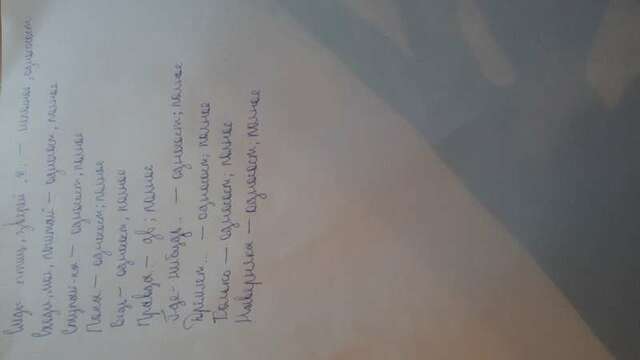 Видь птиц, зверей - неполное, односост
Ведь, мы, почитай - односост, полное
Ступай-ка - односост, полное
Пока - односост; полное
Ведь - односост, полное
Правда - дв; полное
Где-нибудь... - односост; полное
... - односост; полное
Только - односост; полное
Наверняка - односост, полное